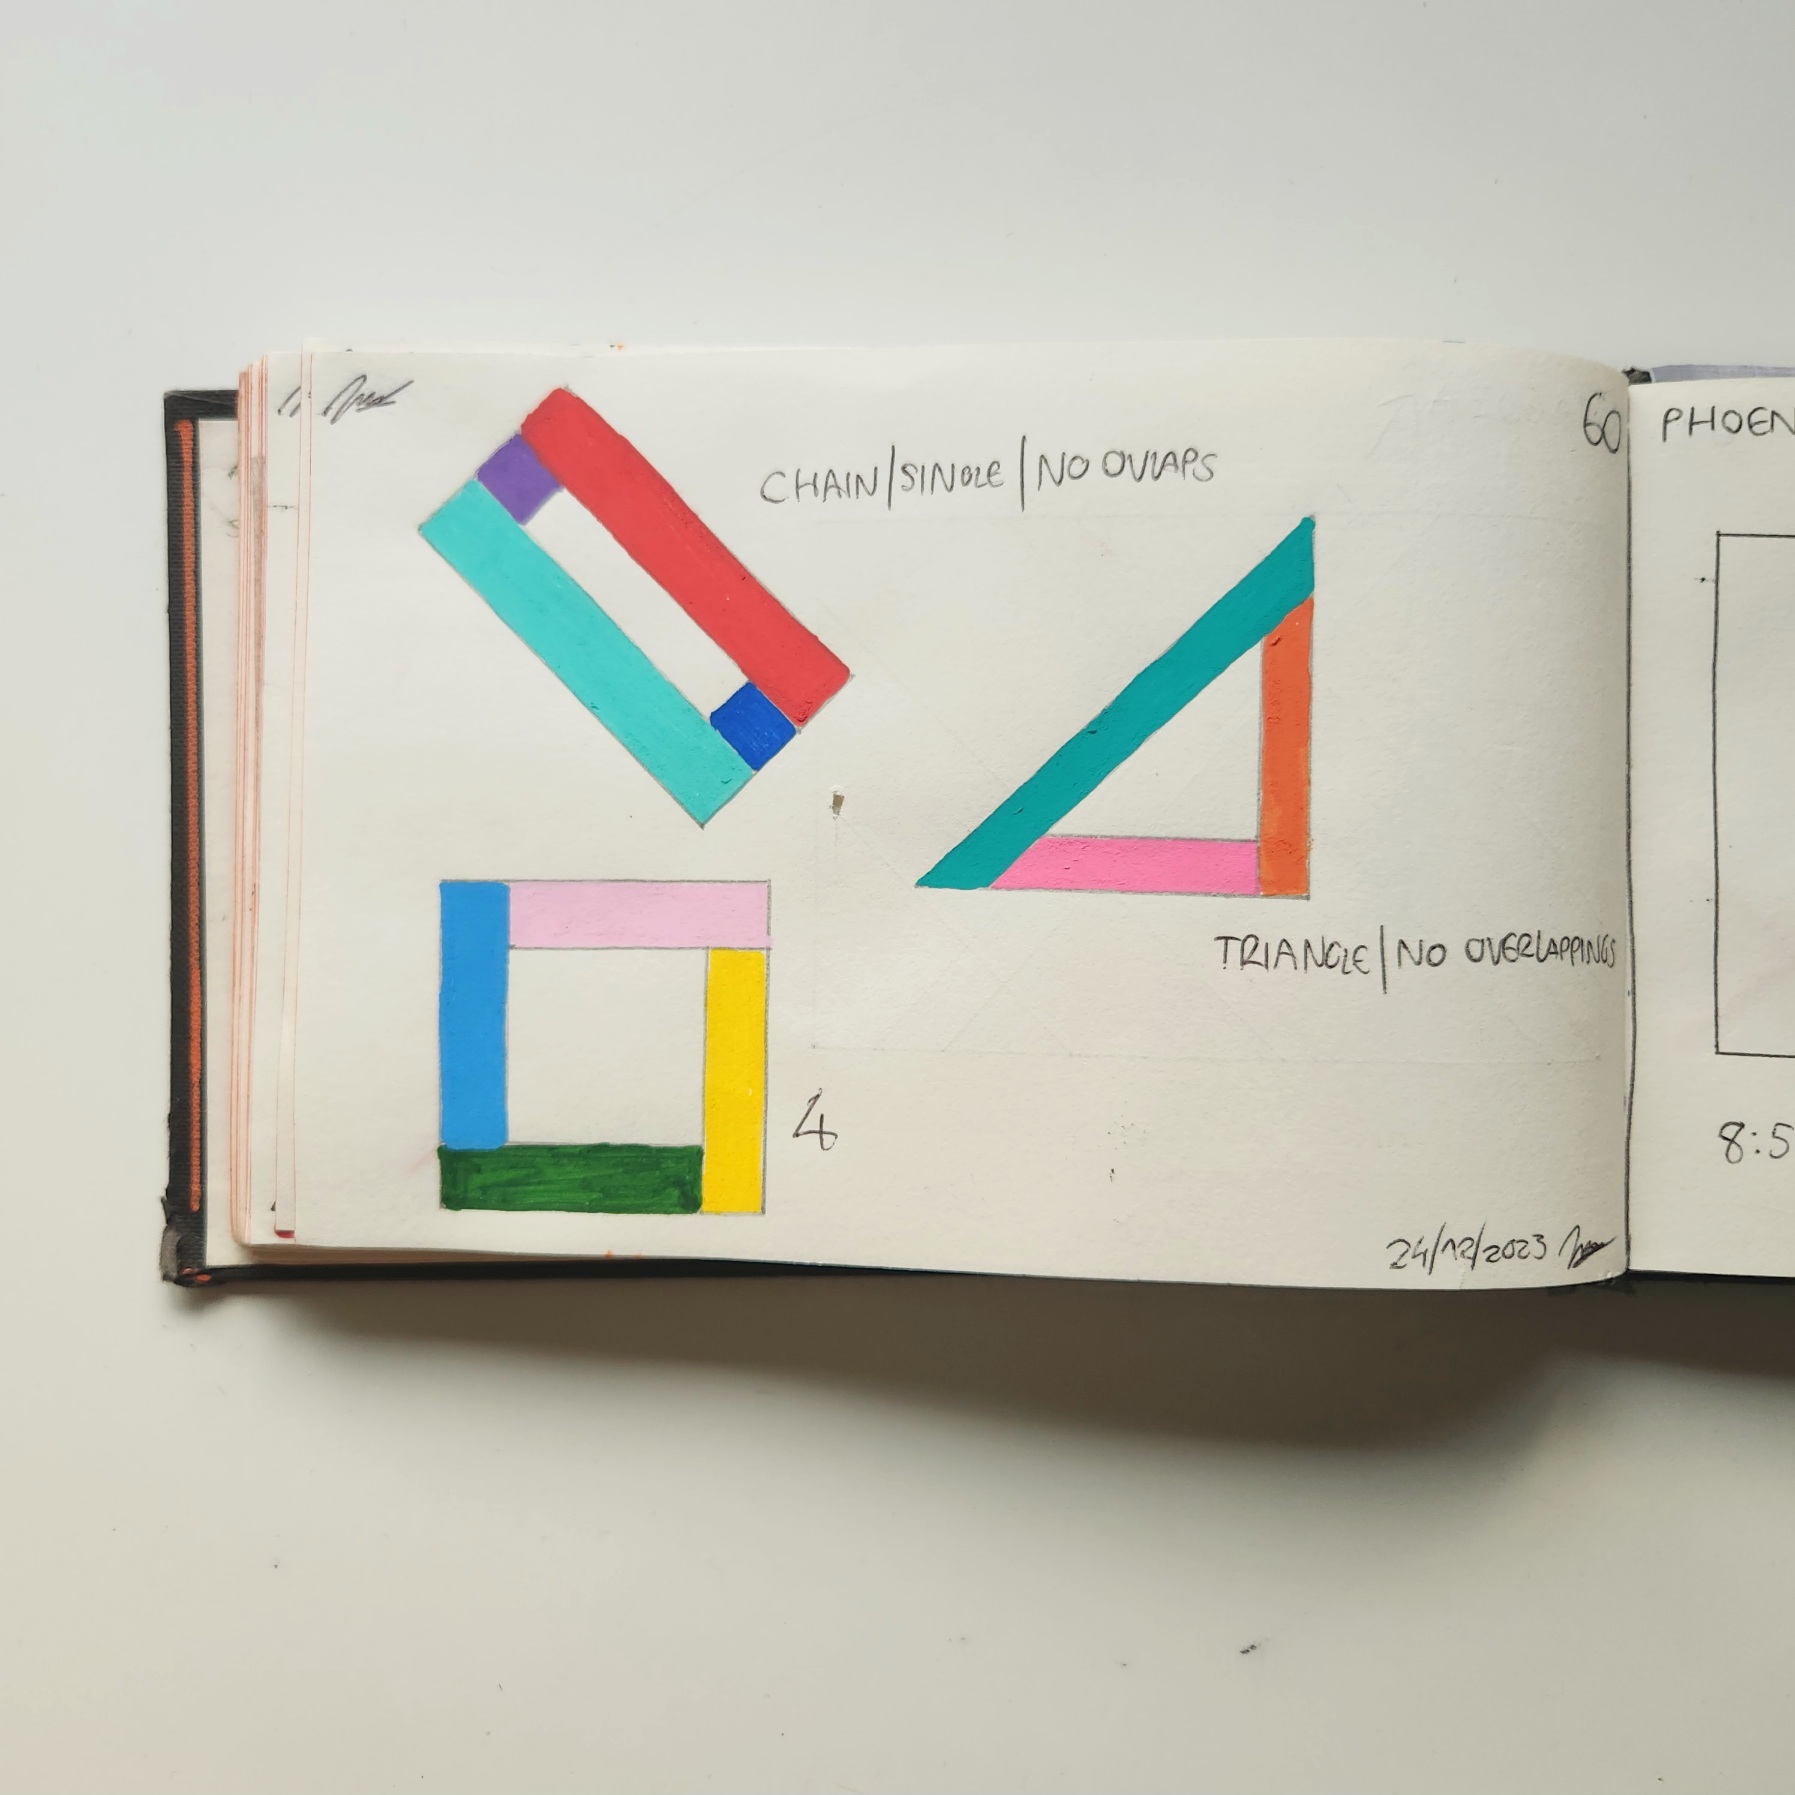 CHAIN/SINGLE/NO OVLAPS
60
TRIANGLE/NO OVERLAPPINGS
4
24/12/2023
PHOEN
8:5